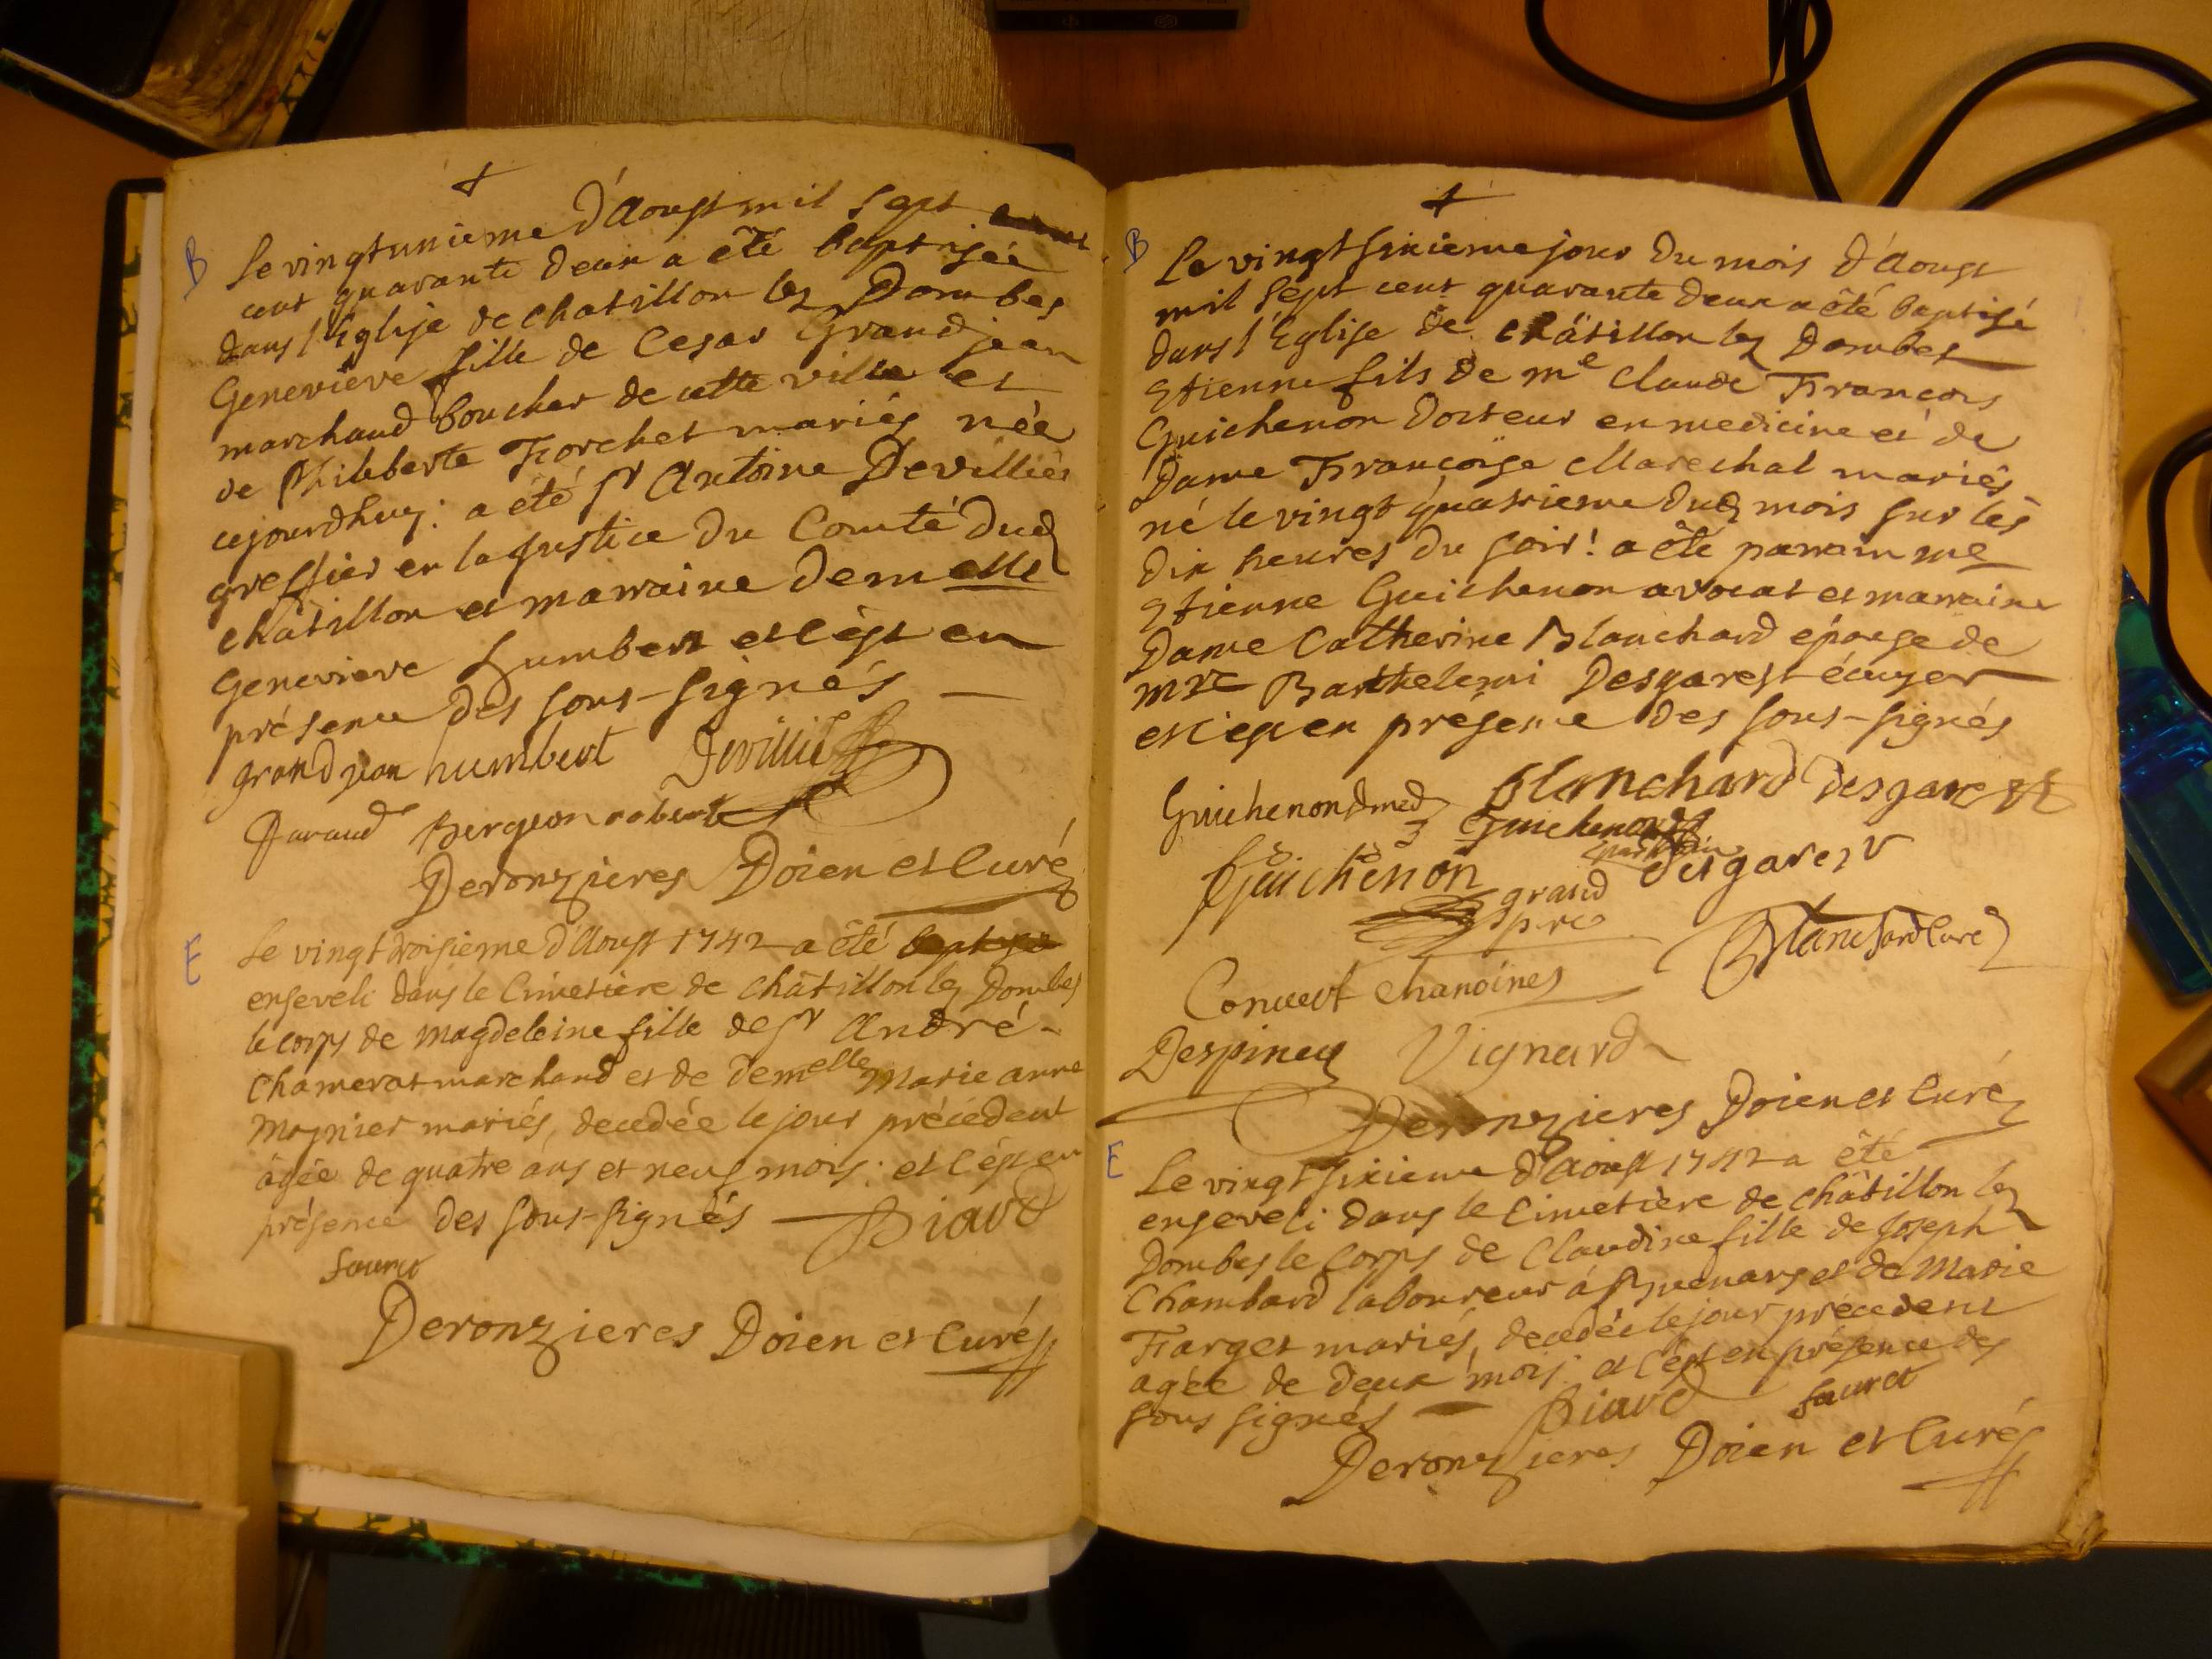 B
Le vingt unieme d'Aoust mil sept
cent quarante deux a été baptisée
dans l'Eglise de Chatillon lez Dombes
Genevieve fille de Cesar Grandjean
marchand boucher de cette ville et
de Philiberte Forchet mariés née
cejourdhuy: a été Sr Antoine Devilliés
greffier en la Justice du Comté dud
châtillon et marraine demelle
Genevieve humbert et c'est en
présence des sous-signés
grandjean humbert Devillié
Daraud Bergeon robert
Deronzieres Doien et Curé
E
Le vingt troisieme d'Aoust 1742 a été baptisée
enseveli dans le Cimetière de Châtillon lez Dombes
le corps de Magdeleine fille de Sr André
Chamerat marchand et de demelle Marie anne
Mognier mariés, decedée le jour précédent
âgée de quatre ans et neuf mois: et c'est en
présence des sous-signés Biard
Sauret
Deronzieres Doien et Curé
B
Le vingt sixieme jour du mois d'Aoust
mil sept cent quarante deux a été baptisé
dans l'Eglise de Châtillon lez Dombes
Etienne fils de me Claude François
Guichenon Docteur en medicine et de
Dame Françoise Marechal mariés
né le vingt quatrieme dud mois sur les
dix heures du soir! a été parrain me
Etienne Guichenon avocat et marraine
Dame Catherine Blanchard épouse de
mre Barthelemi Desgarest écuyer
et c'est en présence des sous-signés
Guichenon dmed Blanchard desgarest
Guichenon
parrain
Guichenon grand desgarest
pre
Blanchard Curé
Convert chanoines
Despiney Vignard
Deronzieres Doien et Curé
E
Le vingt sixieme d'Aoust 1742 a été
enseveli dans le Cimetière de Châtillon lez
Dombes le corps de Claudine fille de Joseph
Chambard laboureur à et de Marie
Farget mariés, decedée le jour précedent
agée de deux mois: et c'est en présence des
sous signés Biard Sauret
Deronzieres Doien et Curé